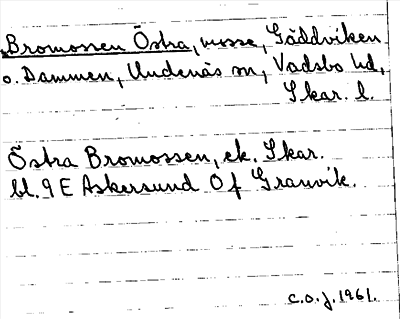 Bromossen Östra, mosse, Gäddviken
o. Dammen, Undenäs sn, Vadsbo hd,
Skar. l.
Östra Bromossen, ek. Skar.
bl. 9 E Askersund 0 f Granvik.
C.O.J. 1961.